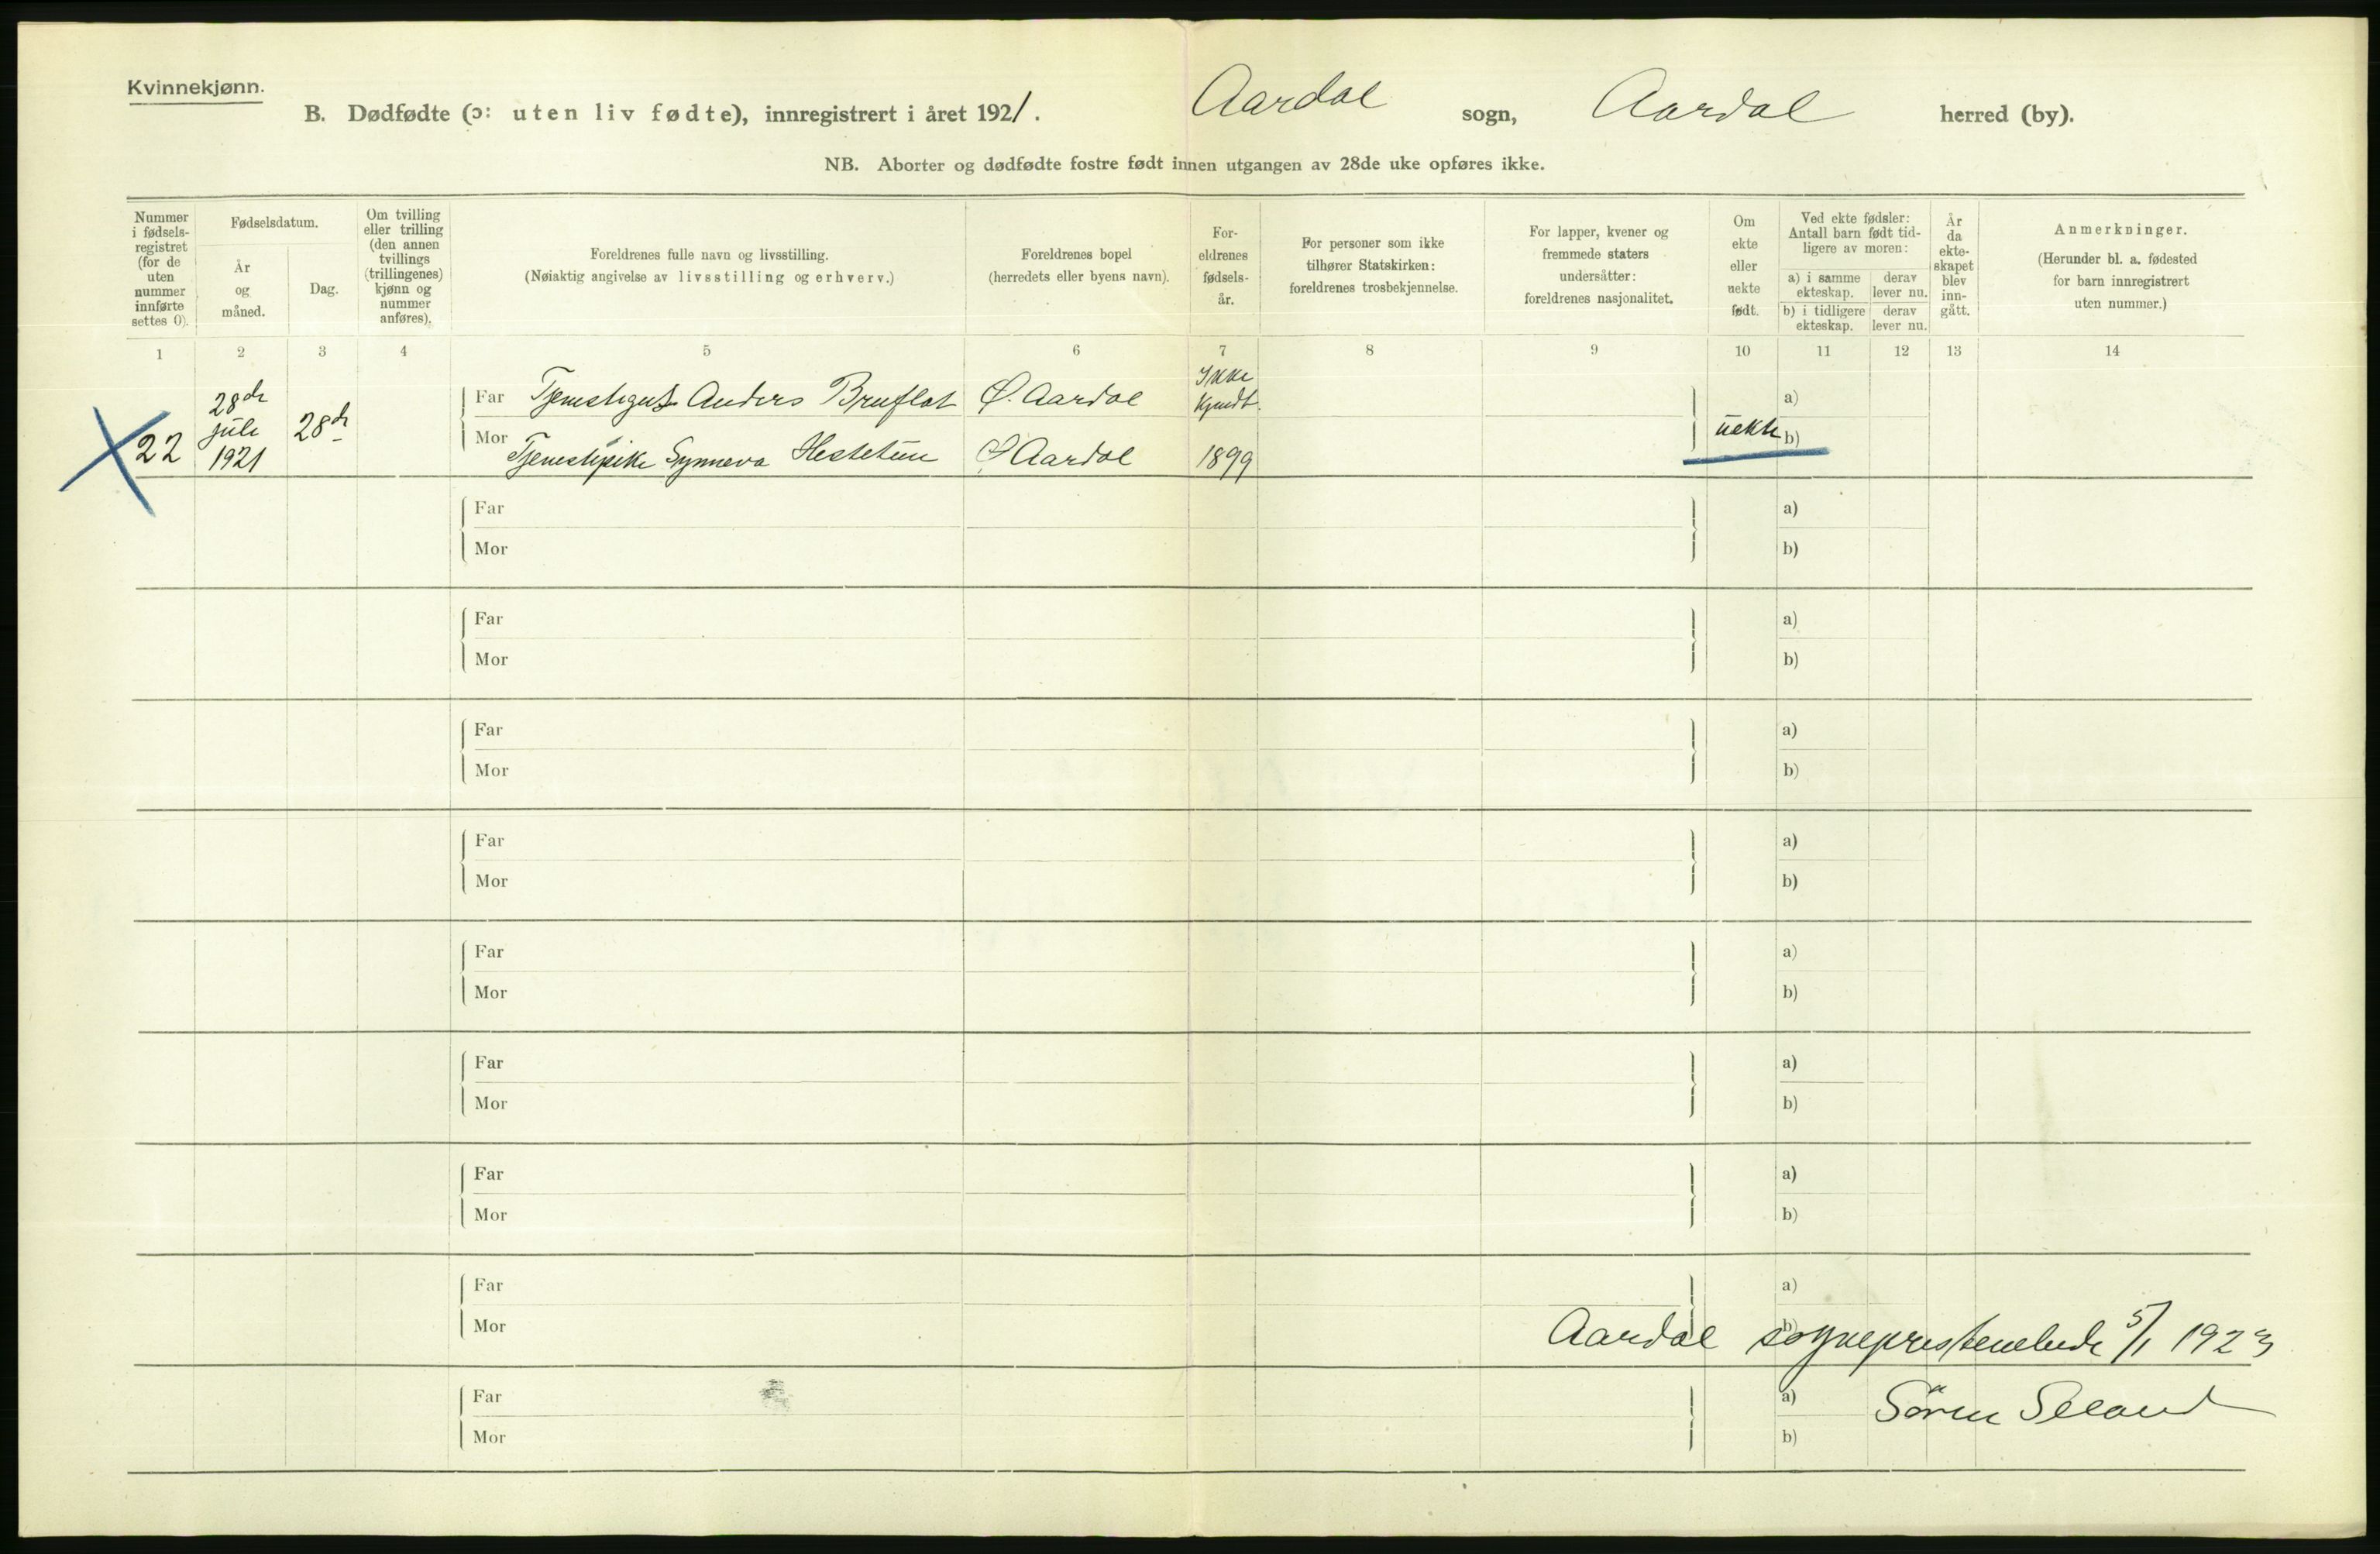 Kvinnekjønn.
B. Dødfødte (ɔ: uten liv fødte), innregistrert i året 1921. Aardal sogn, Aardal herred (by).
NB. Aborter og dødfødte fostre født innen utgangen av 28de uke opføres ikke.
Nummer
i fødsels-
registret
(for de
uten
nummer
innførte
settes 0).
Fødselsdatum.
År
og
måned.
Dag.
Om tvilling
eller trilling
(den annen
tvillings
(trillingenes)
kjønn og
nummer
anføres).
Foreldrenes fulle navn og livsstilling.
(Nøiaktig angivelse av livsstilling og erhverv.)
Foreldrenes bopel
(herredets eller byens navn).
For-
eldrenes
fødsels-
år.
For personer som ikke
tilhører Statskirken:
foreldrenes trosbekjennelse.
For lapper, kvener og
fremmede staters
undersåtter:
foreldrenes nasjonalitet.
Om
ekte
eller
uekte
født.
Ved ekte fødsler:
Antall barn født tid-
ligere av moren:
a) i samme
ekteskap.
derav
lever nu.
b) i tidligere
ekteskap.
derav
lever nu.
År
da
ekte-
skapet
blev
inn-
gått.
Anmerkninger.
(Herunder bl. a. fødested
for barn innregistrert
uten nummer.)
1 2 3 4 5 6 7 8 9 10 11 12 13 14
22
28de
juli
1921
28de
Far Tjenestegut Anders Bruflat Ø. Aardal Ikke
kjendt.
a)
Mor Tjenestepike Synneva Hestetun Ø. Aardal 1899 uekte b)
Far a)
Mor b)
Far a)
Mor b)
Far a)
Mor b)
Far a)
Mor b)
Far a)
Mor b)
Far a)
Mor b)
Far a)
Mor b)
Far a)
Mor b)
Aardal sogneprestembede 5/1 1923
Far a)
Søren Seland
Mor b)